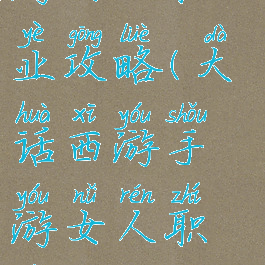 yè gōng lüè dà
业攻略(大
huà xī yóu shǒu
话西游手
yóu nǚ rén zhí
游女人职